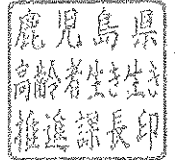 鹿児島県
高齢者生き生き
推進課長印